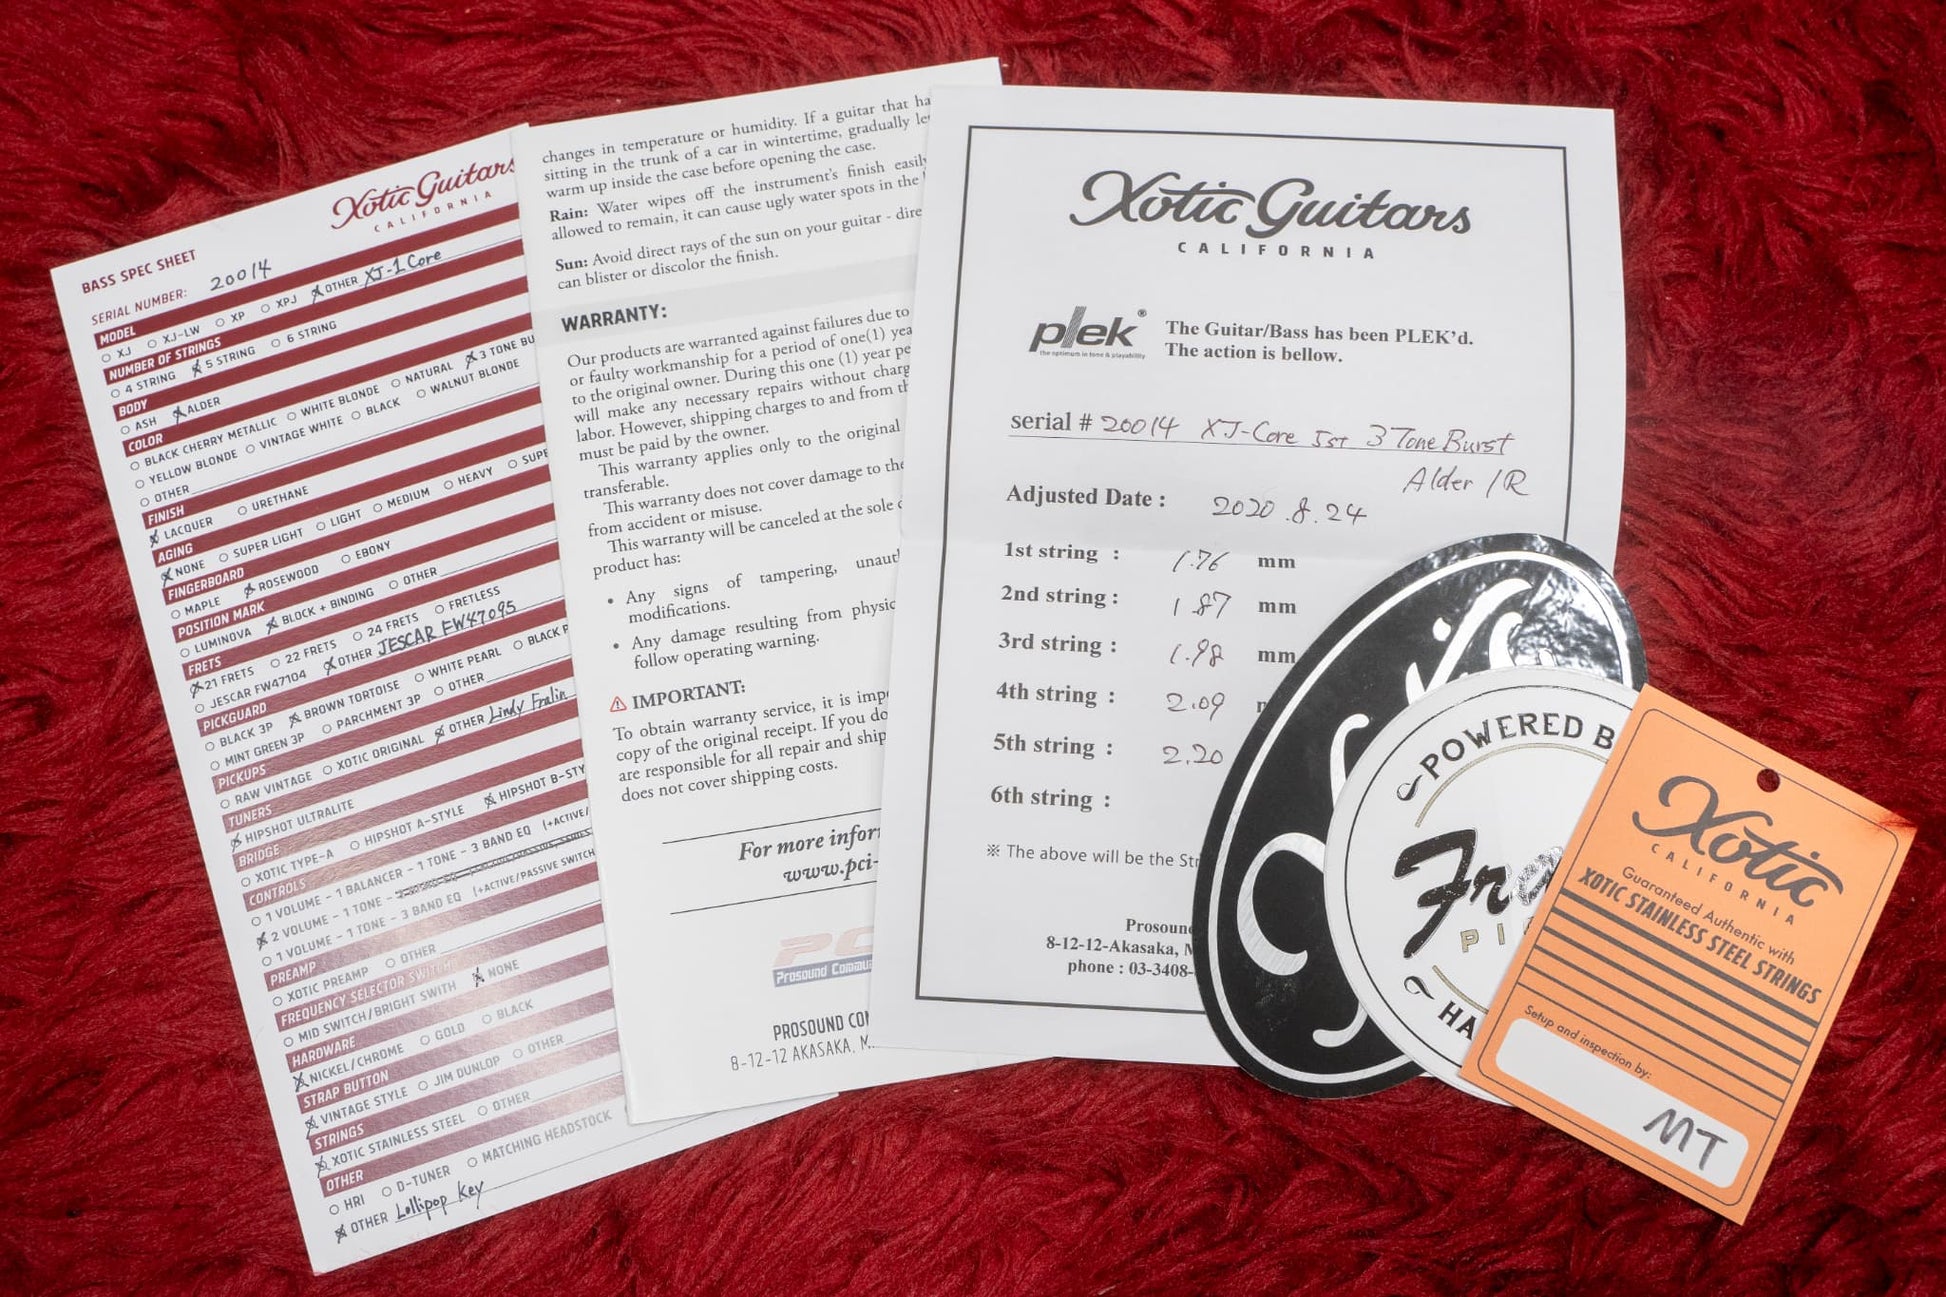 Xotic Guitars
CALIFORNIA
BASS SPEC SHEET
SERIAL NUMBER: 20014
MODEL
○ XJ ○ XJ-LW ○ XP ○ XPJ ☓ OTHER XJ-1 Core
NUMBER OF STRINGS
○ 4 STRING ☓ 5 STRING ○ 6 STRING
BODY
○ ASH ☓ ALDER
COLOR
○ BLACK CHERRY METALLIC ○ WHITE BLONDE ○ NATURAL ☓ 3 TONE BU
○ YELLOW BLONDE ○ VINTAGE WHITE ○ BLACK ○ WALNUT BLONDE
○ OTHER
FINISH
☓ LACQUER ○ URETHANE
AGING
☓ NONE ○ SUPER LIGHT ○ LIGHT ○ MEDIUM ○ HEAVY ○ SUPE
FINGERBOARD
○ MAPLE ☓ ROSEWOOD ○ EBONY
POSITION MARK
○ LUMINOVA ☓ BLOCK + BINDING ○ OTHER
FRETS
☓ 21 FRETS ○ 22 FRETS ○ 24 FRETS ○ FRETLESS
○ JESCAR FW47104 ☓ OTHER JESCAR FW47095
PICKGUARD
○ BLACK 3P ☓ BROWN TORTOISE ○ WHITE PEARL ○ BLACK P
○ MINT GREEN 3P ○ PARCHMENT 3P ○ OTHER
PICKUPS
○ RAW VINTAGE ○ XOTIC ORIGINAL ☓ OTHER Lindy Fralin
TUNERS
☓ HIPSHOT ULTRALITE
BRIDGE
○ XOTIC TYPE-A ○ HIPSHOT A-STYLE ☓ HIPSHOT B-STY
CONTROLS
○ 1 VOLUME - 1 BALANCER - 1 TONE - 3 BAND EQ (+ACTIVE/
☓ 2 VOLUME - 1 TONE - 3 BAND EQ
○ 1 VOLUME - 1 TONE - 3 BAND EQ (+ACTIVE/PASSIVE SWITCH
PREAMP
○ XOTIC PREAMP ○ OTHER
FREQUENCY SELECTOR SWITCH
○ MID SWITCH/BRIGHT SWITH ☓ NONE
HARDWARE
☓ NICKEL/CHROME ○ GOLD ○ BLACK
STRAP BUTTON
☓ VINTAGE STYLE ○ JIM DUNLOP ○ OTHER
STRINGS
☓ XOTIC STAINLESS STEEL ○ OTHER
OTHER
○ HRI ○ D-TUNER ○ MATCHING HEADSTOCK
☓ OTHER Lollipop Key
changes in temperature or humidity. If a guitar that ha
sitting in the trunk of a car in wintertime, gradually le
warm up inside the case before opening the case.
Rain: Water wipes off the instrument's finish easily
allowed to remain, it can cause ugly water spots in the
Sun: Avoid direct rays of the sun on your guitar - dire
can blister or discolor the finish.
WARRANTY:
Our products are warranted against failures due to
or faulty workmanship for a period of one(1) yea
to the original owner. During this one (1) year pe
will make any necessary repairs without charg
labor. However, shipping charges to and from th
must be paid by the owner.
This warranty applies only to the original
transferable.
This warranty does not cover damage to the
from accident or misuse.
This warranty will be canceled at the sole
product has:
• Any signs of tampering, unaut
modifications.
• Any damage resulting from physic
follow operating warning.
⚠ IMPORTANT:
To obtain warranty service, it is imp
copy of the original receipt. If you do
are responsible for all repair and ship
does not cover shipping costs.
For more infor
www.pci-
PC
PROSOUND COMMU
PROSOUND CO
8-12-12 AKASAKA, M
Xotic Guitars
CALIFORNIA
plek®
the optimum in tone & playability
The Guitar/Bass has been PLEK'd.
The action is bellow.
serial # 20014 XJ-Core 5st 3 Tone Burst
Alder / R
Adjusted Date : 2020.8.24
1st string : 1.76 mm
2nd string : 1.87 mm
3rd string : 1.98 mm
4th string : 2.09
5th string : 2.20
6th string :
※ The above will be the Str
Prosoun
8-12-12-Akasaka, M
phone : 03-3408-
POWERED B
Fra
PI
HA
Xotic
CALIFORNIA
Guaranteed Authentic with
XOTIC STAINLESS STEEL STRINGS
Setup and inspection by:
MT